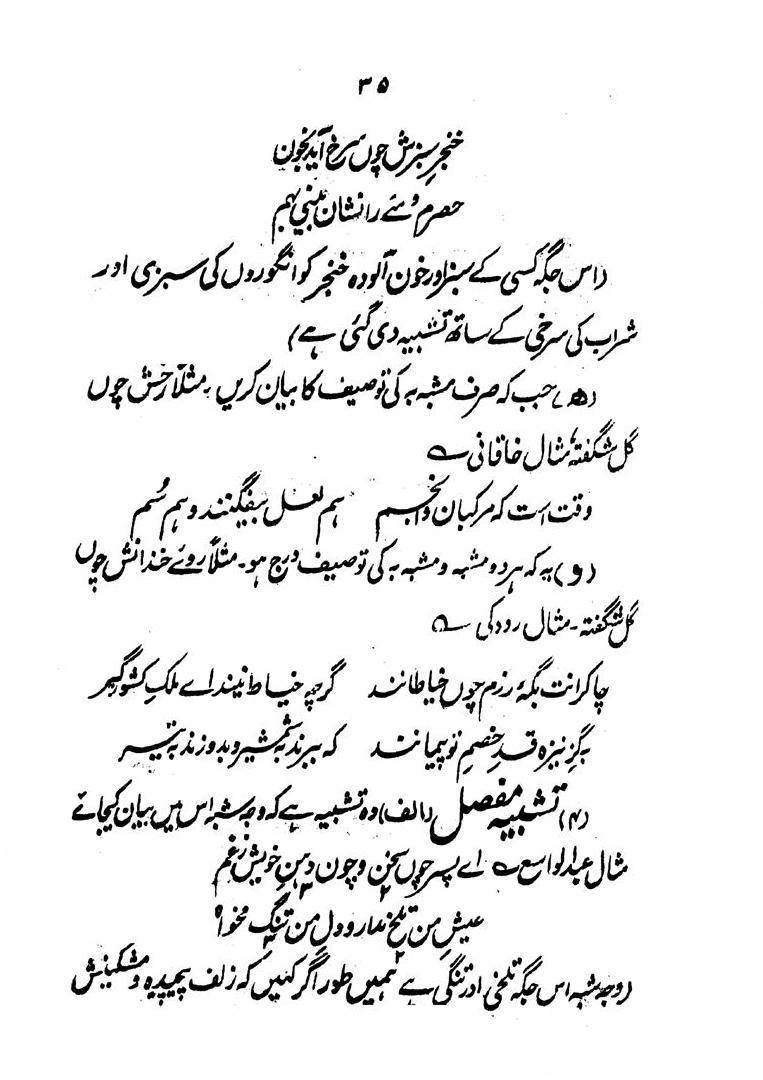 ۳۵
خنجرِ سبزش چوں سرخ آید بخون
حصرم و مے را نشان بینی بہم
(اس جگہ کسی کے سبز اور خون آلودہ خنجر کو انگوروں کی سبزی اور
شراب کی سرخی کے ساتھ تشبیہ دی گئی ہے)
(ھ) جب کہ صرف مشبہ بہ کی توصیف کا بیان کریں۔ مثلاً رخش چوں
گل شگفتہ، مثال خاقانی ؎
وقت است کہ مرکبان و انجم ہم نعل بیفگنند و ہم سُم
(و) یہ کہ ہر دو مشبہ و مشبہ بہ کی توصیف درج ہو۔ مثلاً روے خندانش چوں
گل شگفتہ۔ مثال رودکی ؎
چاکرانت بگہِ رزم چوں خیاطانند گرچہ خیاط نیند اے ملکِ کشورگیر
بگزِ نیزہ قدِ خصمِ تو پیمانند کہ ببرند بہ شمشیر و بدوزند بہ تیر
(۴) تشبیہ مفصل (الف) وہ تشبیہ ہے کہ وجہ شبہ اس میں بیان کیجائے
مثال عبدالواسع ؎ اے پسر چوں سخن و چون دہنِ خویش زغم
عیشِ من تلخ مدار و دلِ من تنگ مخواہ
(وجہ شبہ اس جگہ تلخی اور تنگی ہے ہمیں طور اگر کہیں کہ زلف پیچیدہ و مشکینش